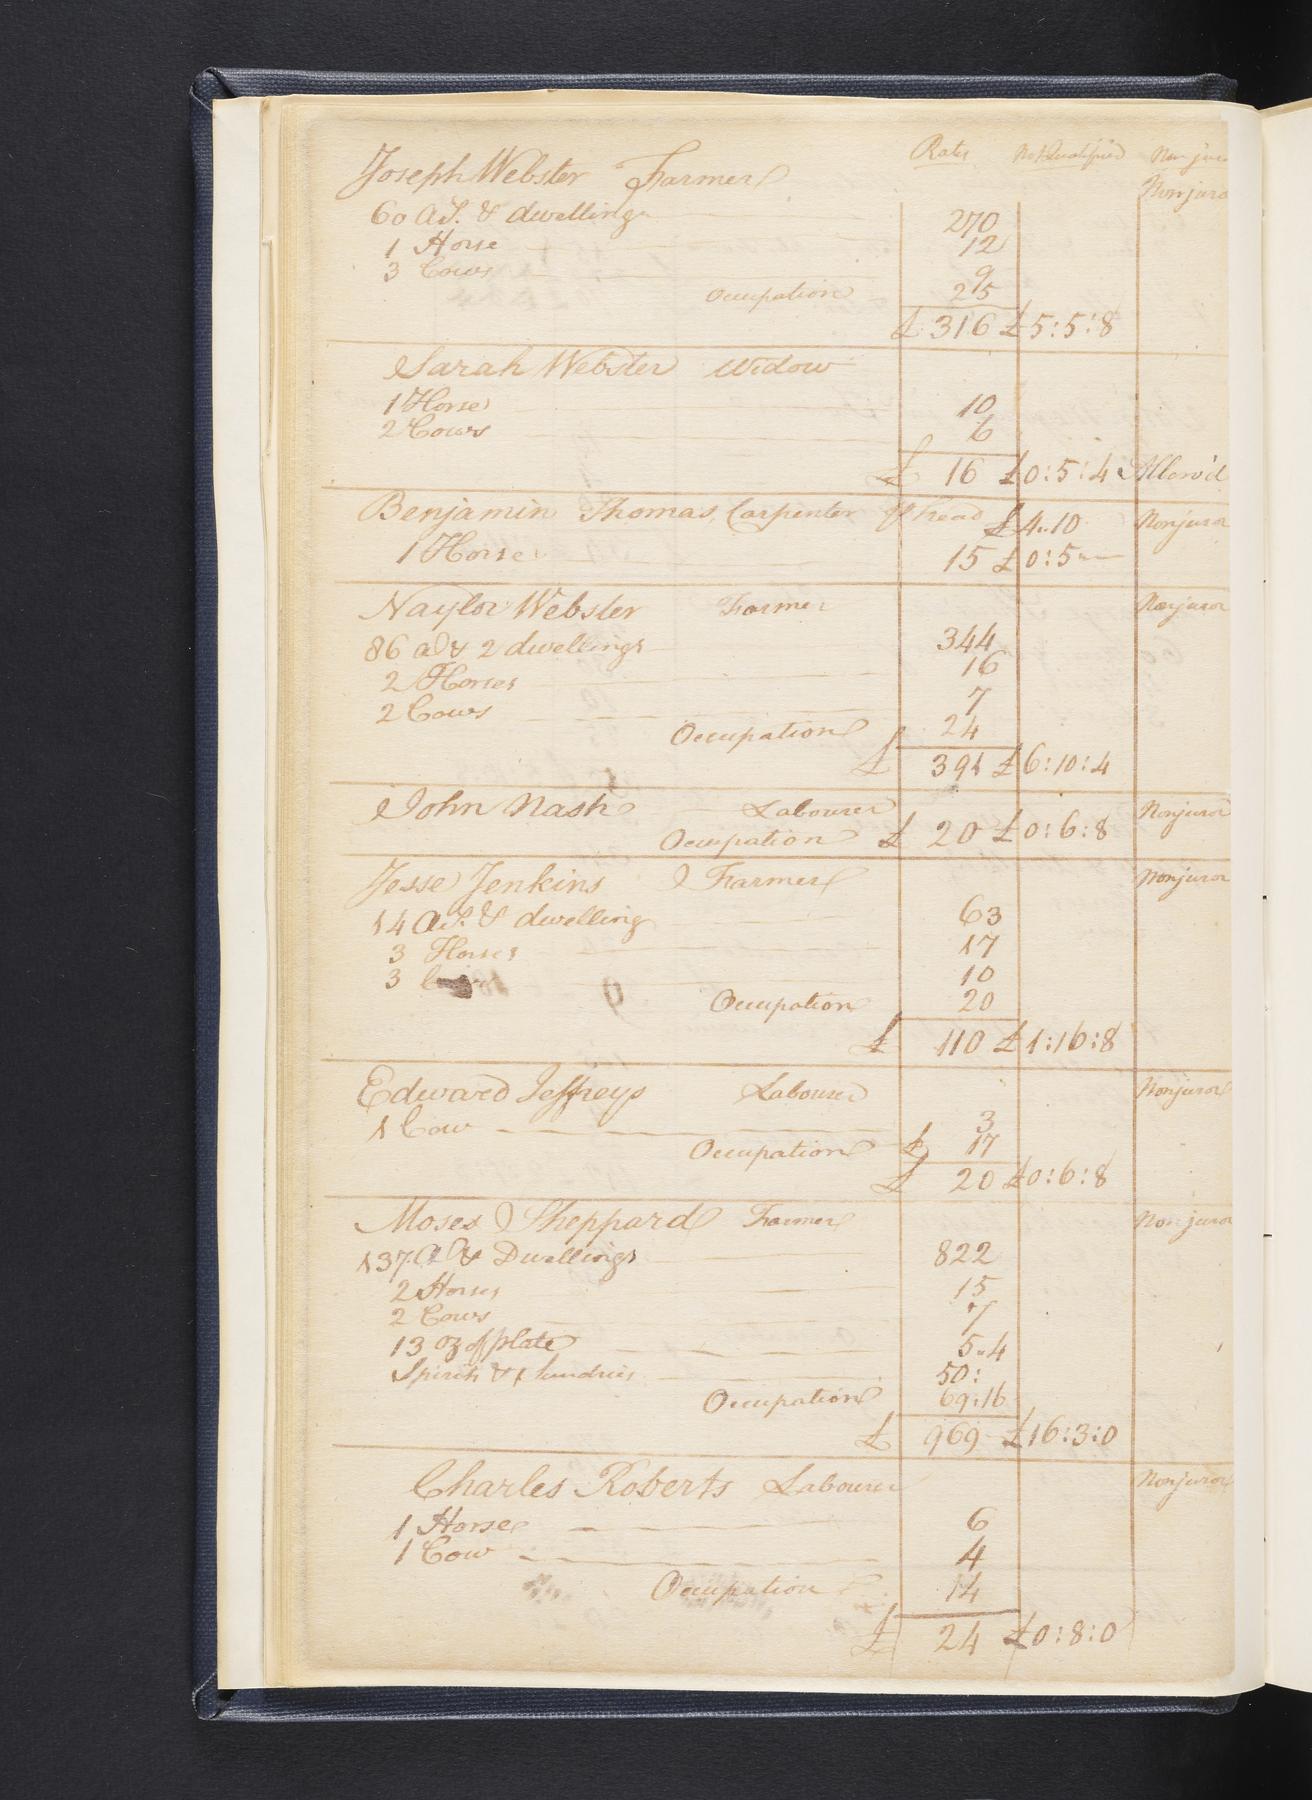 Rates Not Qualified Non jur
Joseph Webster Farmer Nonjuro
60 as. & dwelling 270
1 Horse 12
3 Cows 9
Occupation 25
£ 316 £5:5:8
Sarah Webster Widow
1 Horse 10
2 Cows 6
£ 16 £0:5:4 Allow'd
Benjamin Thomas, Carpenter head £4..10 Nonjuror
1 Horse 15 £0:5
Naylor Webster Farmer Nonjuror
86 as & 2 dwellings 344
2 Horses 16
2 Cows 7
Occupation 24
£ 391 £6:10:4
John Nash Labourer Nonjuror
Occupation £ 20 £0:6:8
Jesse Jenkins Farmer Nonjuror
14 as. & dwelling 63
3 Horses 17
3 10
Occupation 20
£ 110 £1:16:8
Edward Jeffreys Labourer Nonjuror
1 Cow 3
Occupation £ 17
£ 20 £0:6:8
Moses Sheppard Farmer Nonjuror
137 as & Dwellings 822
2 Horses 15
2 Cows 7
13 oz of plate 5..4
Spirits & sundries 50:
Occupation 69:16
£ 969 £16:3:0
Charles Roberts Labourer Nonjuror
1 Horse 6
1 Cow 4
Occupation 14
£ 24 £0:8:0